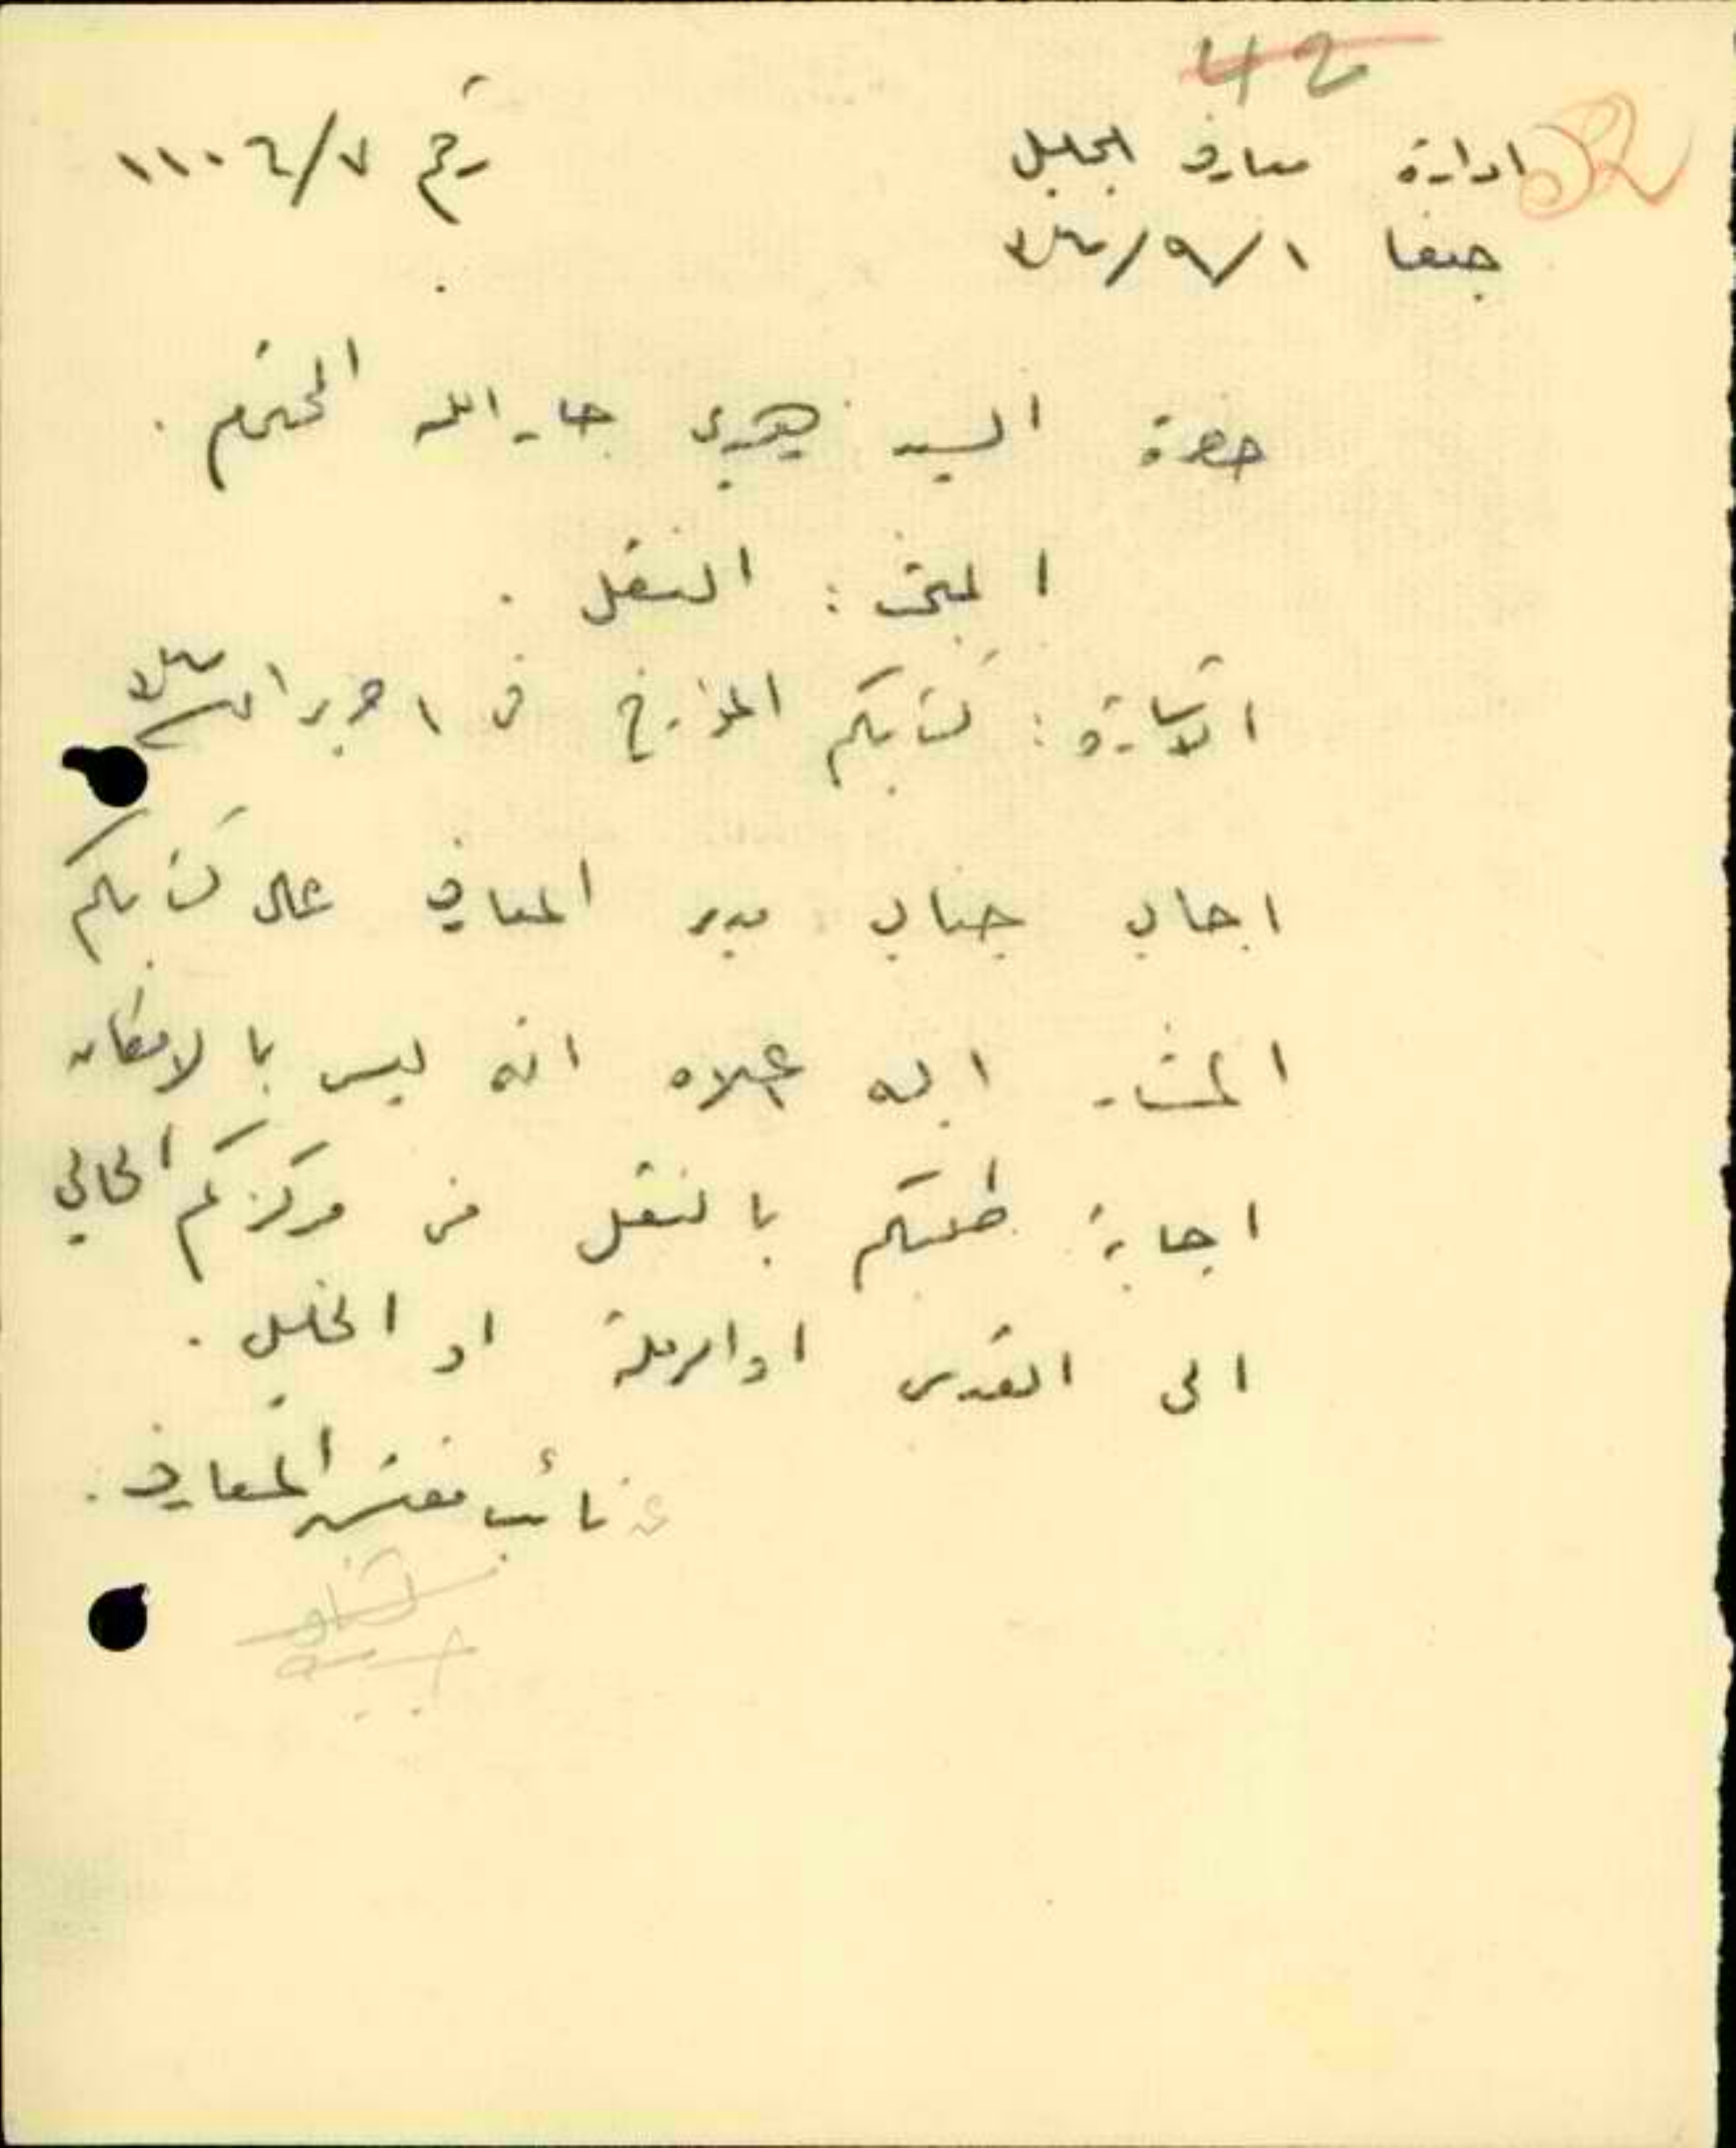 42
52
ادارة معارف الجليل
رقم ٧/١١٠٤
حيفا ١/٩/٣٤
حضرة السيد صبري جار الله المحترم .
المبحث : النقل .
الاشارة : كتابكم المؤرخ في ١ حزيران ٣٤
اجاب جناب مدير المعارف على كتابكم
المشار اليه اعلاه انه ليس بالامكان
اجابة طلبكم بالنقل من مركزكم الحالي
الى القدس او الرملة او الخليل .
نائب مفتش المعارف .